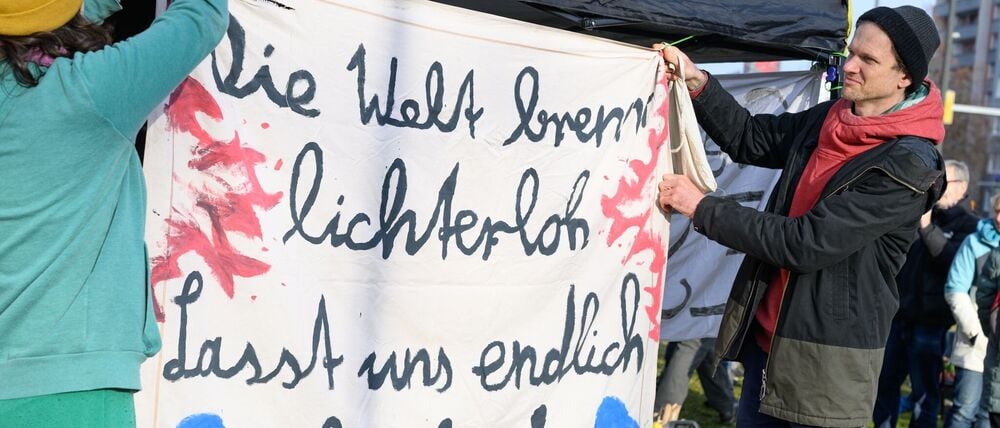 Die Welt brenn
lichterloh
Lasst uns endlich